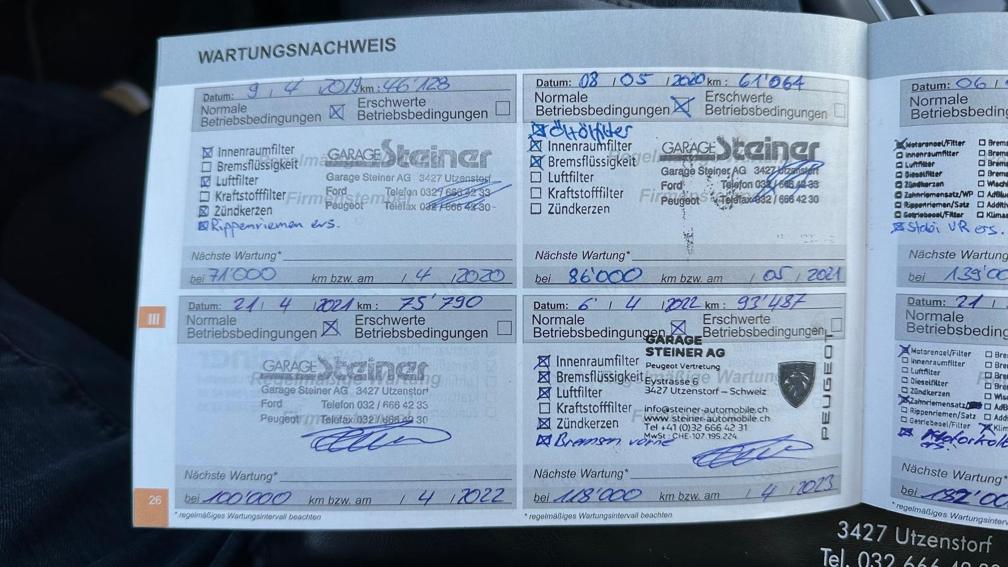 WARTUNGSNACHWEIS
Datum: 9 / 4 / 2019 km: 46'128
Normale Betriebsbedingungen ☒ Erschwerte Betriebsbedingungen ☐
☒ Innenraumfilter
☐ Bremsflüssigkeit
☒ Luftfilter
☐ Kraftstofffilter
☒ Zündkerzen
☒ Rippenriemen ers.
GARAGE Steiner
Garage Steiner AG 3427 Utzenstorf
Ford Telefon 032 / 666 42 33
Peugeot Telefax 032 / 666 42 30
Nächste Wartung*
bei 71'000 km bzw. am / 4 / 2020
Datum: 08 / 05 / 2020 km: 61'064
Normale Betriebsbedingungen ☒ Erschwerte Betriebsbedingungen ☐
☒ Öl+Ölfilter
☒ Innenraumfilter
☒ Bremsflüssigkeit
☐ Luftfilter
☐ Kraftstofffilter
☐ Zündkerzen
GARAGE Steiner
Garage Steiner AG 3427 Utzenstorf
Ford Telefon 032 / 666 42 33
Peugeot Telefax 032 / 666 42 30
Nächste Wartung*
bei 86'000 km bzw. am / 05 / 2021
Datum: 21 / 4 / 2021 km: 75'790
Normale Betriebsbedingungen ☒ Erschwerte Betriebsbedingungen ☐
GARAGE Steiner
Regelmäßige Wartung
Garage Steiner AG 3427 Utzenstorf
Ford Telefon 032 / 666 42 33
Peugeot Telefax 032 / 666 42 30
Nächste Wartung*
bei 100'000 km bzw. am / 4 / 2022
Datum: 6 / 4 / 2022 km: 93'487
Normale Betriebsbedingungen ☒ Erschwerte Betriebsbedingungen ☐
☒ Innenraumfilter
☒ Bremsflüssigkeit
☒ Luftfilter
☐ Kraftstofffilter
☒ Zündkerzen
☒ Bremsen vorne
GARAGE
STEINER AG
Peugeot Vertretung
Eystrasse 6
3427 Utzenstorf – Schweiz
info@steiner-automobile.ch
www.steiner-automobile.ch
Tel +41 (0)32 666 42 31
MwSt.: CHE-107.195.224
PEUGEOT
Nächste Wartung*
bei 118'000 km bzw. am / 4 / 2023
III
26
* regelmäßiges Wartungsintervall beachten
* regelmäßiges Wartungsintervall beachten
Datum: 06 /
Normale
Betriebsbedingungen
☒ Motorenoel/Filter
☐ Innenraumfilter
☐ Luftfilter
☐ Dieselfilter
☐ Zündkerzen
☐ Zahnriemensatz/WP
☐ Rippenriemen/Satz
☐ Getriebeoel/Filter
☒ Stabi VR ers.
Nächste Wartung*
bei 139'00
Datum: 21 /
Normale
Betriebsbedingungen
☒ Motorenoel/Filter
☐ Innenraumfilter
☐ Luftfilter
☐ Dieselfilter
☐ Zündkerzen
☒ Zahnriemensatz
☐ Rippenriemen/Satz
☐ Getriebeoel/Filter
ers.
Nächste Wartung*
bei
* regelmäßiges
3427 Utzenstorf
Tel. 032 666 42